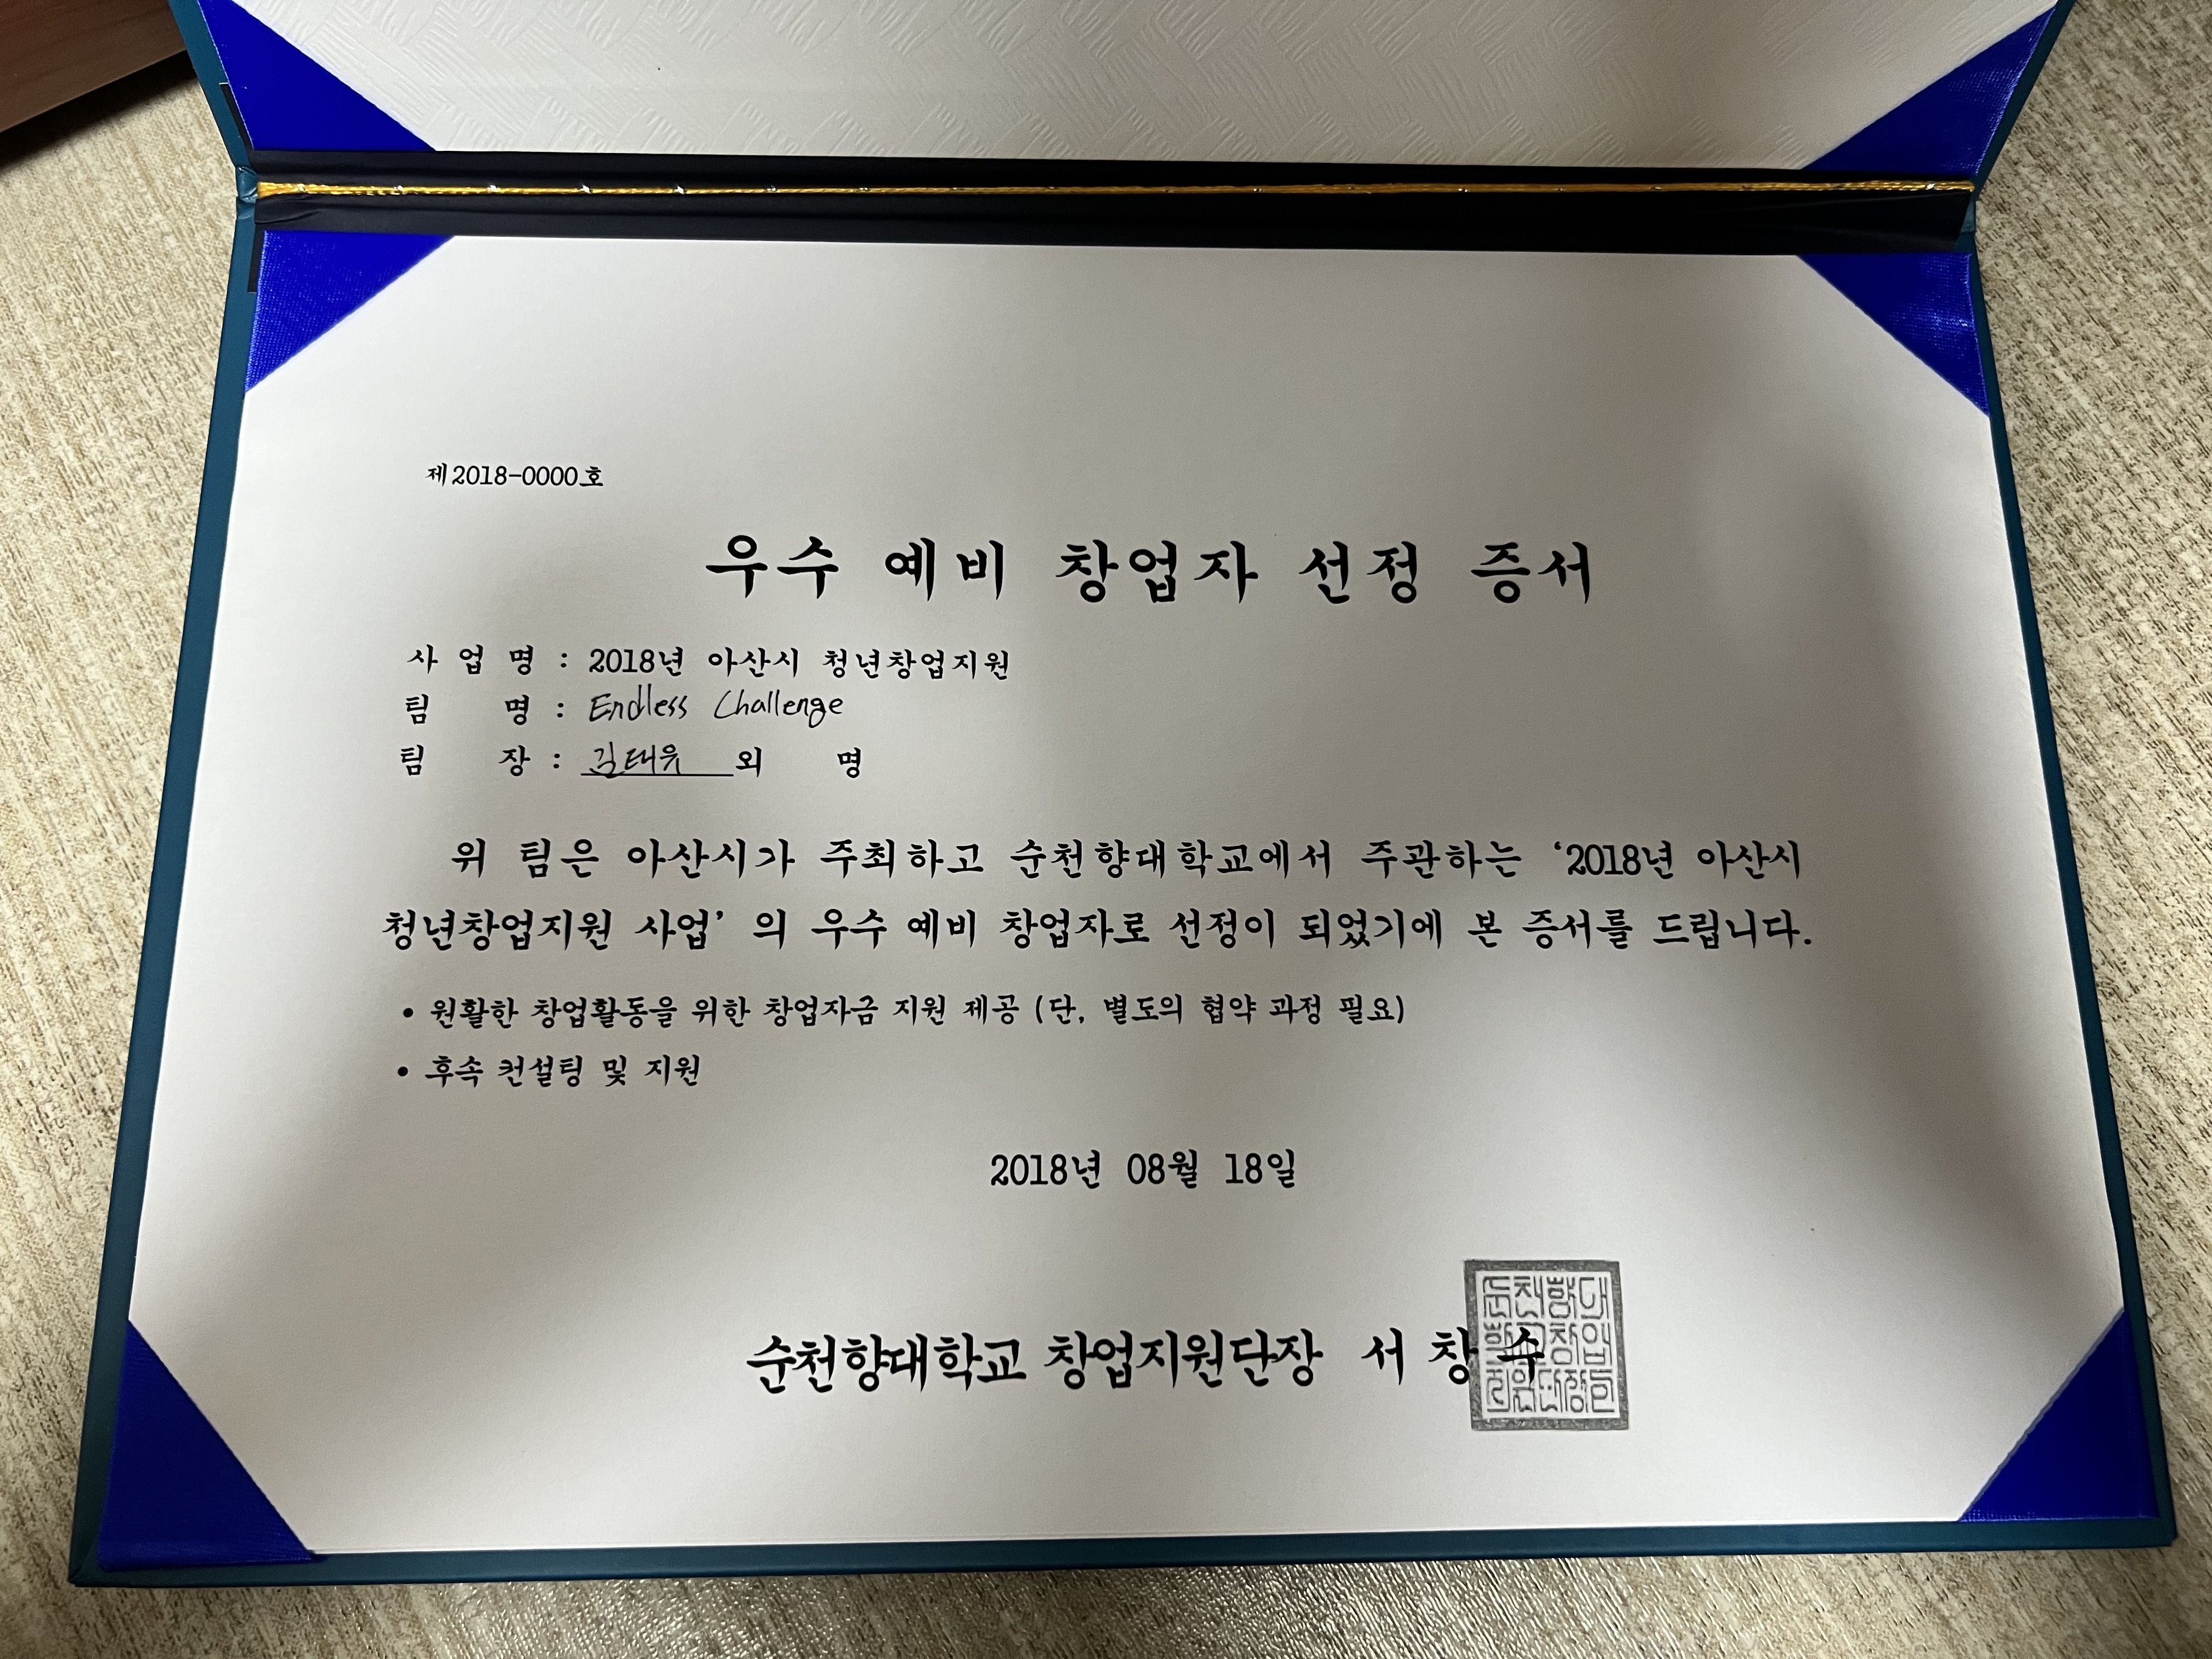 제2018-0000호
우수 예비 창업자 선정 증서
사 업 명 : 2018년 아산시 청년창업지원
팀 명 : Endless Challenge
팀 장 : 김태유 외 명
위 팀은 아산시가 주최하고 순천향대학교에서 주관하는 '2018년 아산시
청년창업지원 사업' 의 우수 예비 창업자로 선정이 되었기에 본 증서를 드립니다.
• 원활한 창업활동을 위한 창업자금 지원 제공 (단, 별도의 협약 과정 필요)
• 후속 컨설팅 및 지원
2018년 08월 18일
순천향대학교 창업지원단장 서 창 수
순천향대
학교창업
지원단장인